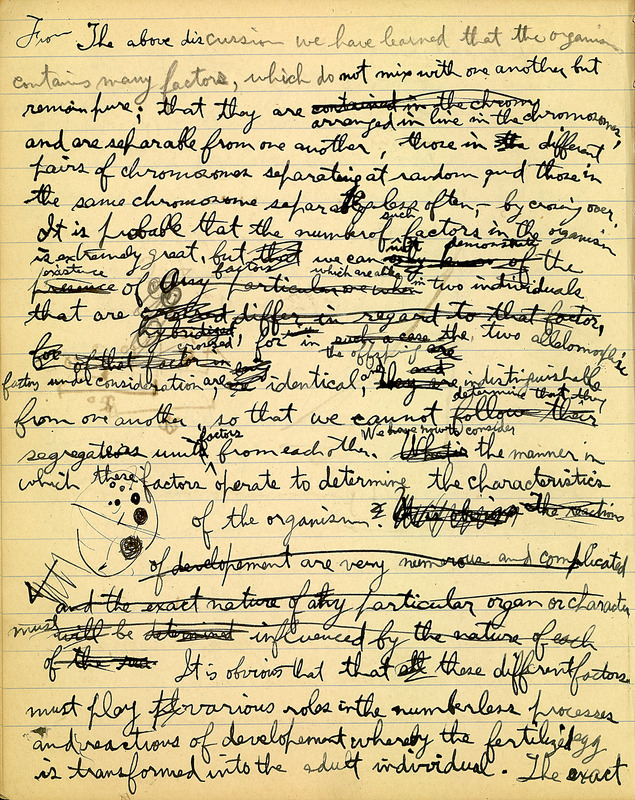 From The above discussion we have learned that the organism
contains many factors, which do not mix with one another, but
remain pure; that they are contained in the chromo
arranged in line in the chromosomes,
and are separable from one another, those in the different
pairs of chromosomes separating at random and those in
the same chromosome separable less often, — by crossing over.
It is probable that the number of such factors in the organism
is extremely great, but that we cannot demonstrate
only know of the
existence
presence of Any factors which are alike in two individuals
particular one when
that are crossed differ in regard to that factor,
hybridized, for in such a case the two allelomorphic
crossed, the offspring are
for of that factor in
factors under consideration, are identical, they are indistinguishable
from one another, so that we cannot determine that they
follow their
segregations until factors from each other. We have now to consider
What is the manner in
which these factors operate to determine the characteristics
of the organism. The reactions
of developement are very numerous and complicated
and the exact nature of any particular organ or character
must
will be determined influenced by the nature of each
of the It is obvious that that all these different factors
must play various roles in the numberless processes
and reactions of developement whereby the fertilized egg
is transformed into the adult individual. The exact